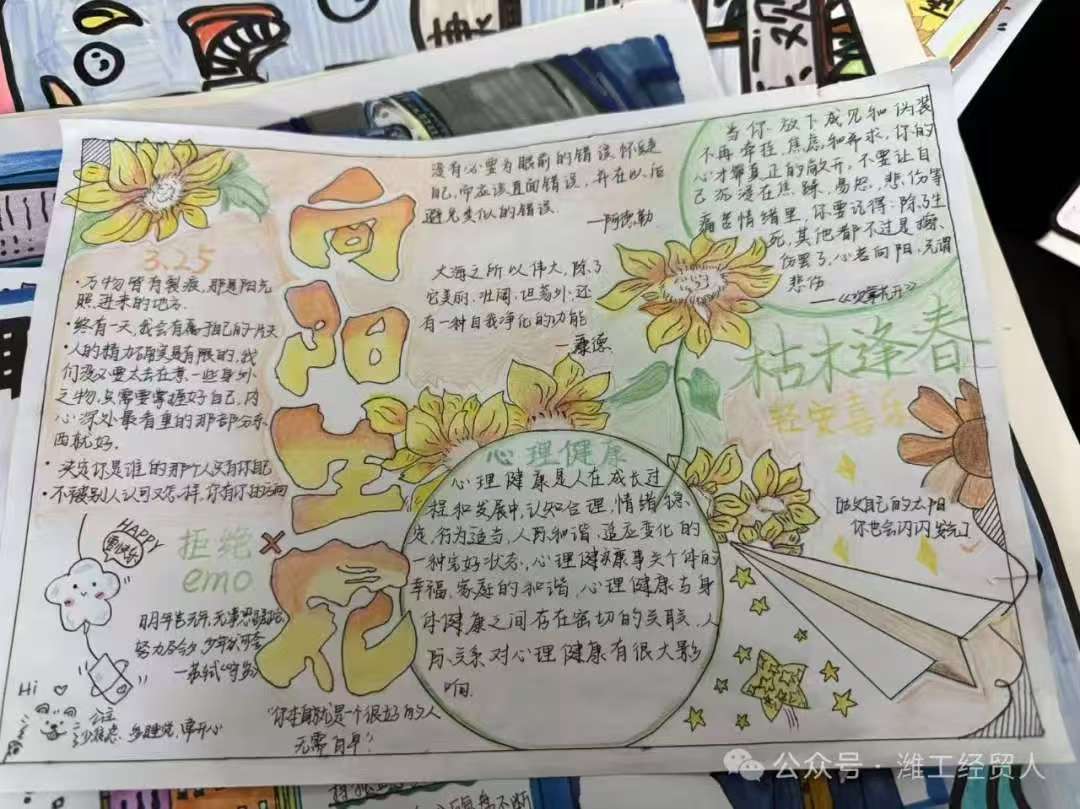 向阳生花
3.25
·万物皆有裂痕,那是阳光
照进来的地方.
·终有一天,我会有属于自己的片天
·人的精力确实是有限的,我
们没必要太去在意一些身外
之物,只需要掌握好自己,内
心深处最看重的那部分东
西就好.
·决定你是谁的那个人只有你自己
·不被别人认可又怎样,你有你的方向
拒绝
emo
HAPPY
要快乐
努力尽今夕,少年犹可夸
Hi
多睡觉,常开心
"你本身就是一个很好的人
无需自卑?
没有必要为眼前的错误怀疑
自己,而应该直面错误,并在以后
避免类似的错误.
—阿德勒
大海之所以伟大,除了
它美丽、壮阔、坦荡外,还
有一种自我净化的功能
—康德
心理健康
心理健康是人在成长过
程和发展中,认知合理,情绪稳
定,行为适当,人际和谐,适应变化的
一种完好状态,心理健康事关个体的
幸福,家庭的和谐,心理健康与身
体健康之间存在密切的关联,人
际关系对心理健康有很大影
响.
当你放下成见和伪装
不再牵挂焦虑和希求,你的
心才算真正的敞开,不要让自
己沉浸在焦躁、愤怒,悲伤等
痛苦情绪里,你要记得:除了生
死,其他都不过是擦
伤罢了,心若向阳,无谓
悲伤
枯木逢春
轻安喜乐
[做自己的太阳
你也会闪闪发光]
公众号·潍工经贸人